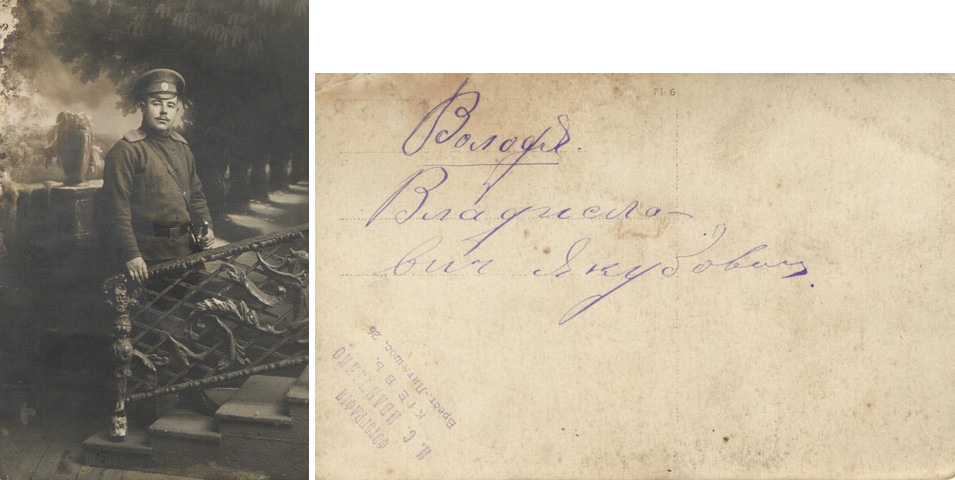 Володя.
Владисло-
вич Якубович.
ФОТОГРАФІЯ
П. С.
КІЕВЪ,
Брест-Лит-шос. 26